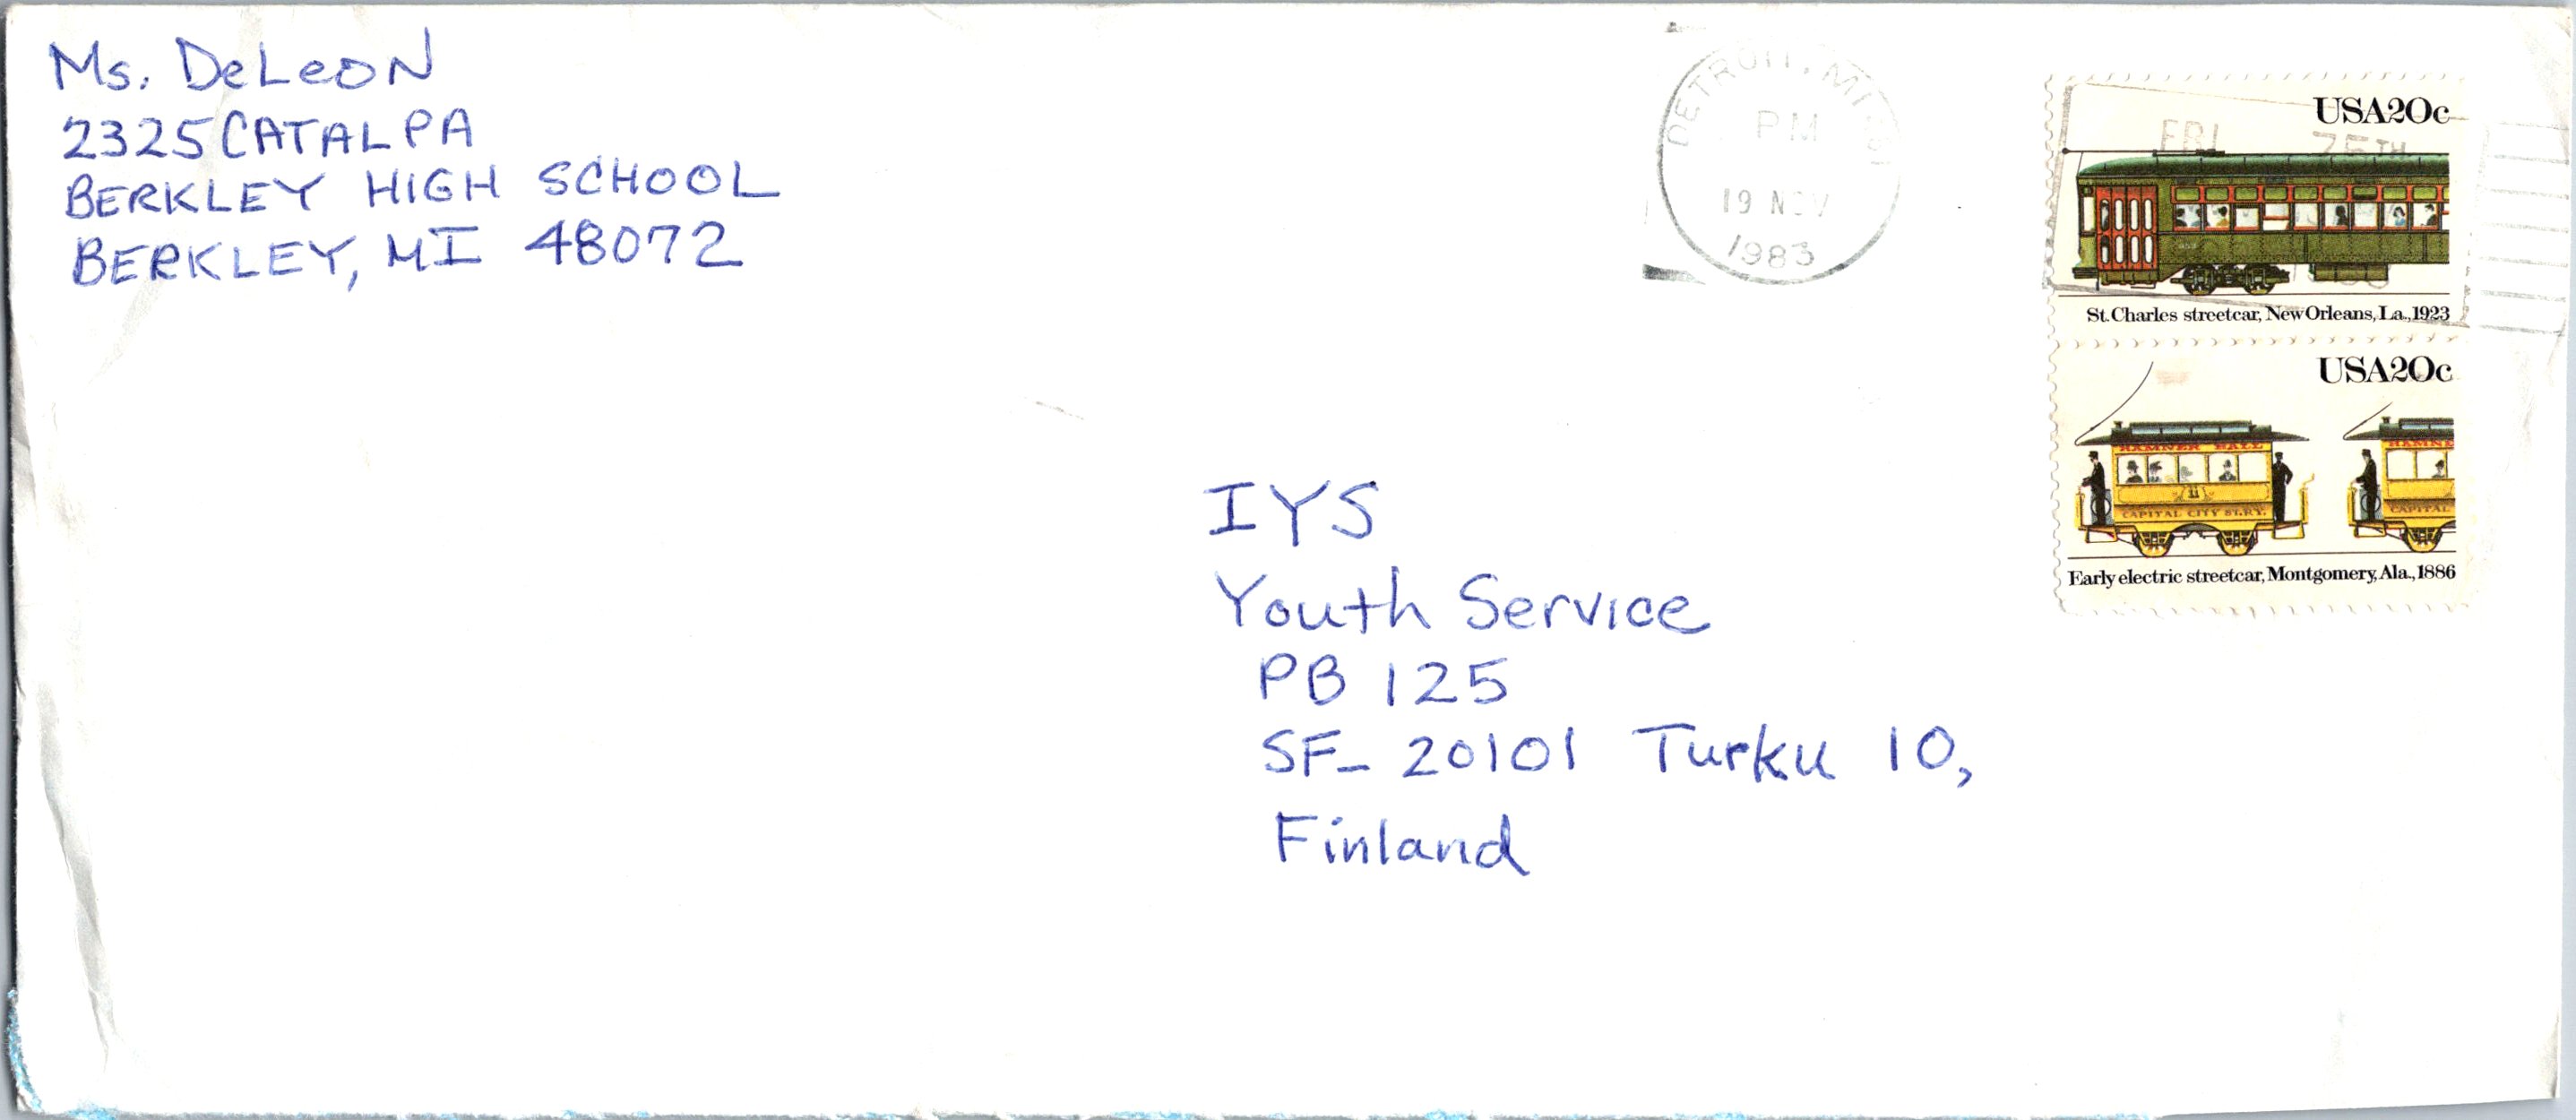 Ms. DeLeon
2325 CATALPA
BERKLEY HIGH SCHOOL
BERKLEY, MI 48072
DETROIT, MI
PM
19 NOV
1983
FBI 75TH
USA20c
St. Charles streetcar, New Orleans, La., 1923
USA20c
HAMNER HALL
HAMNE
11
CAPITAL CITY ST. RY.
CAPITAL
Early electric streetcar, Montgomery, Ala., 1886
IYS
Youth Service
PB 125
SF- 20101 Turku 10,
Finland